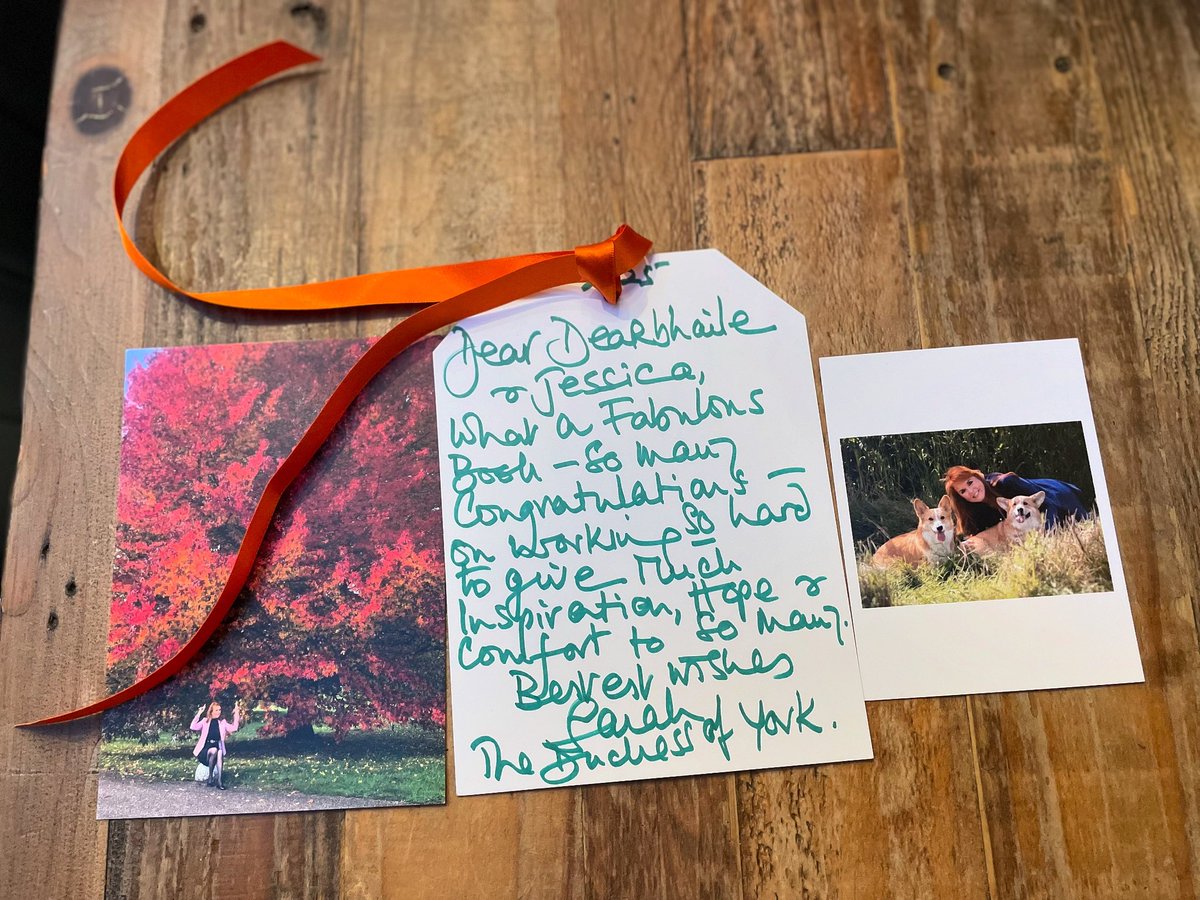 Dear Dearbhaile
& Jessica,
What a Fabulous
Book - So many
Congratulations -
on working so hard
to give Much
Inspiration, Hope &
Comfort to so many.
Bestest wishes
Sarah
The Duchess of York.